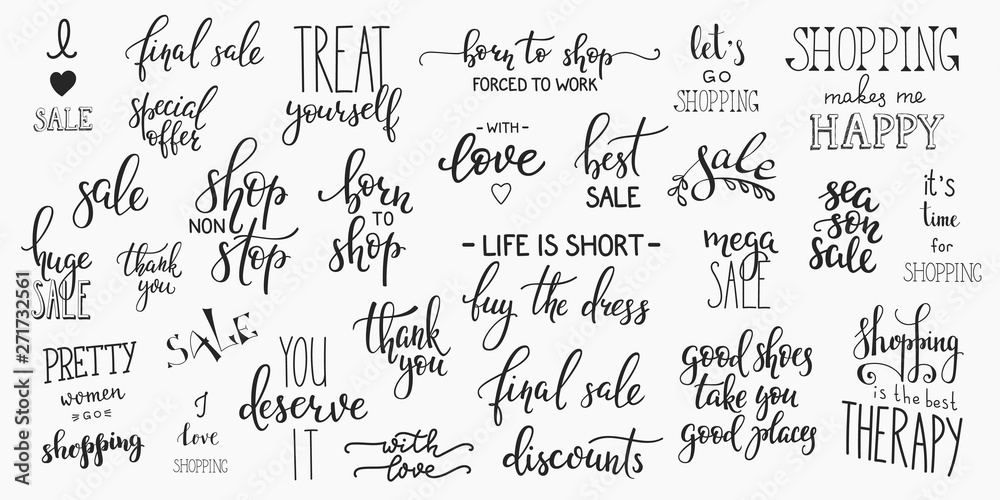 I
SALE
final sale
special
offer
TREAT
yourself
born to shop
FORCED TO WORK
let's
GO
SHOPPING
SHOPPING
makes me
HAPPY
- WITH -
love
best
SALE
sale
sale
shop
NON
stop
born
TO
shop
sea
son
sale
it's
time
for
SHOPPING
huge
SALE
thank
you
- LIFE IS SHORT -
buy the dress
mega
SALE
PRETTY
women
GO
shopping
SALE
I
love
SHOPPING
YOU
deserve
IT
thank
you
with
love
final sale
discounts
good shoes
take you
good places
shopping
is the best
THERAPY
Adobe Stock | #271732561
Adobe Stock